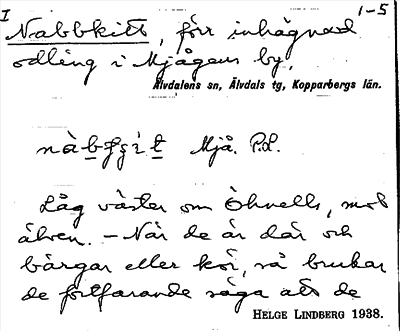 I 1-5
Nabbkitt, förr inhägnad
odling i Mjågens by.
Älvdalens sn, Älvdals tg, Kopparbergs län.
Mjå. P.L.
Låg väster om Öhvells, mot
älven. - När de är där och
bärgar eller kör, så brukar
de fortfarande säga att de
HELGE LINDBERG 1938.